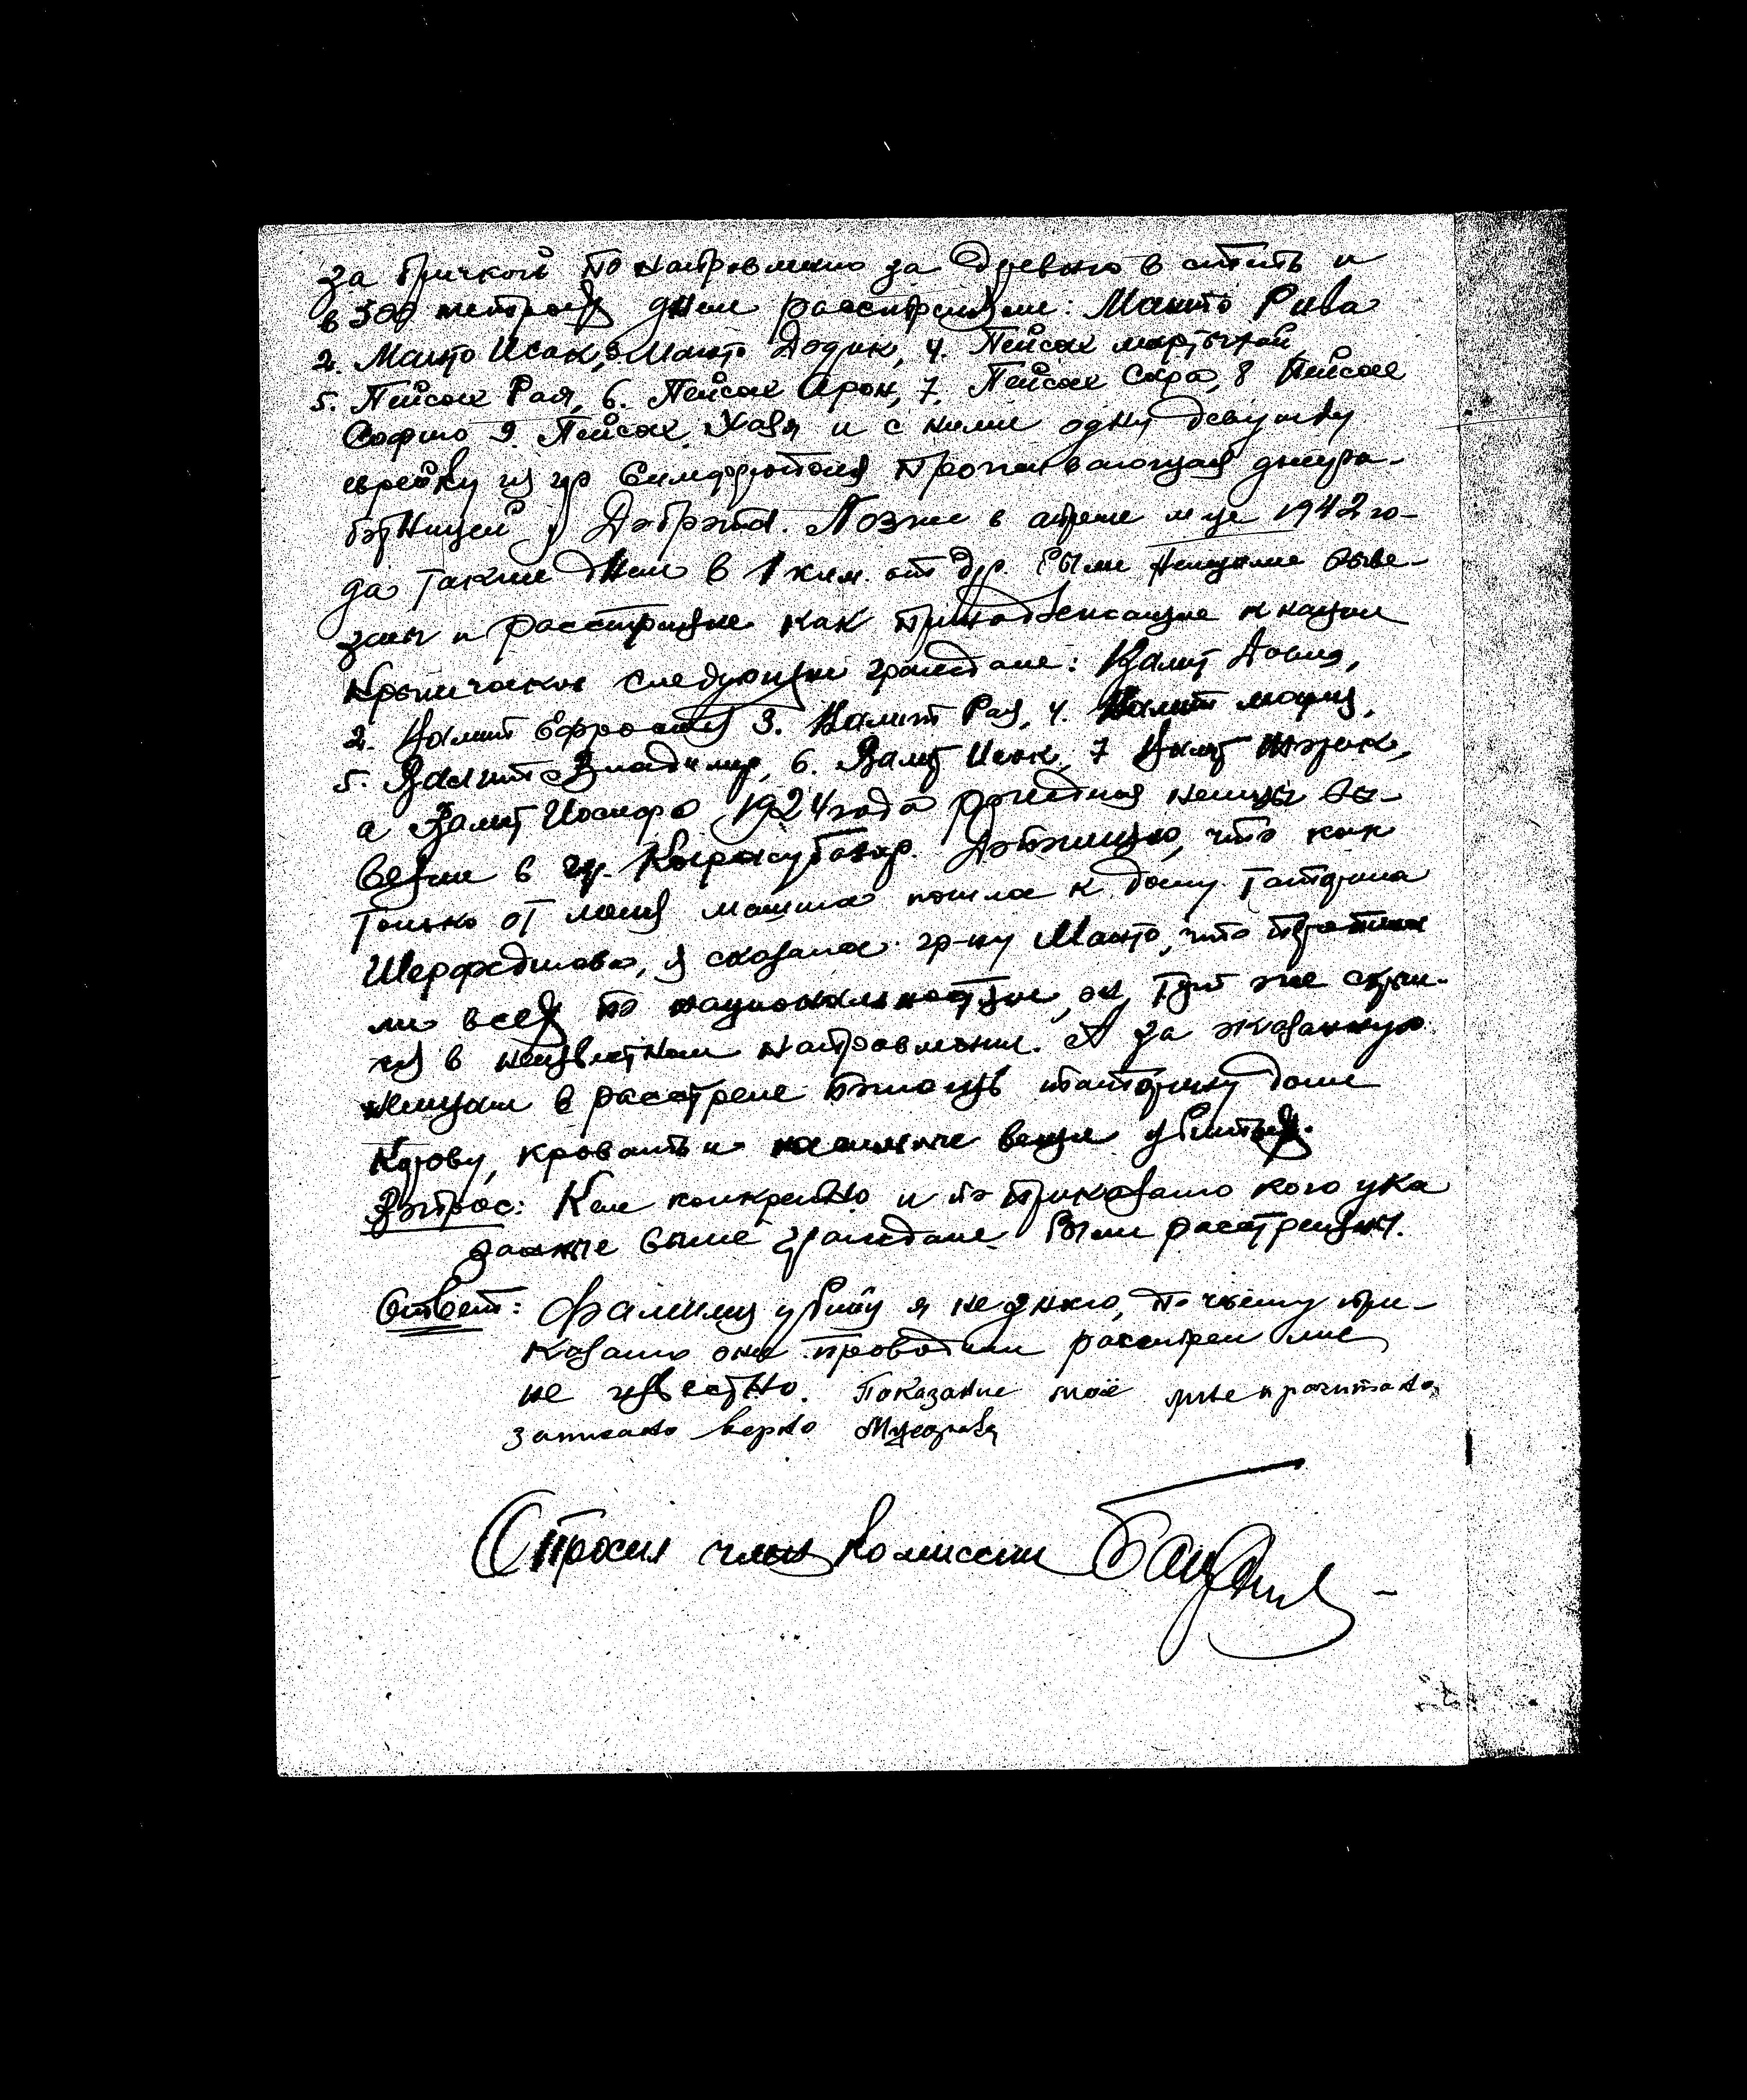 за бричкой по направлению за деревню в степь и
в 500 метрах днем расстреляли: Манто Рива
2. Манто Исак, 3. Манто Додик, 4. Пейсах
5. Пейсах Рая, 6. Пейсах Арон, 7. Пейсах Сара, 8 Пейсах
Софию 9. Пейсах Хая и с ними одну девушку
еврейку из гор Симферополя проживающая домра-
ботницей у. Позже в апреле м-це 1942 го-
да также днем в 1 клм. от др. были немцами выве-
зены и расстреляне как принадлежащие к нации
Крымчаков следующие граждане: Валит
2. Валит Ефросиня 3. Валит Рая, 4. Валит Мария,
5. Валит Владимир, 6. Валит Исак, 7 Валит
а Валит Иосифа 1924 года рождения немцы вы-
везли в гор. Карасубазар. Добавляю, что как
только от меня машина пошла к дому татарина
, я сказала гр-ну Манто, что
ли всех по национальностям, он тут же скрыл-
ся в неизвестном направлении. А за оказанную
немцам в расстреле помощь татарину дали
Корову, кровать и вещи убитых.
Вопрос: Кем конкретно и по приказанию кого ука
занные выше граждане были расстреляны.
Ответ: Фамилии убийц я не знаю, по чьему при-
казанию они проводили расстрел мне
не известно. Показание моё мне прочитано,
записано верно
Опросил член комиссии